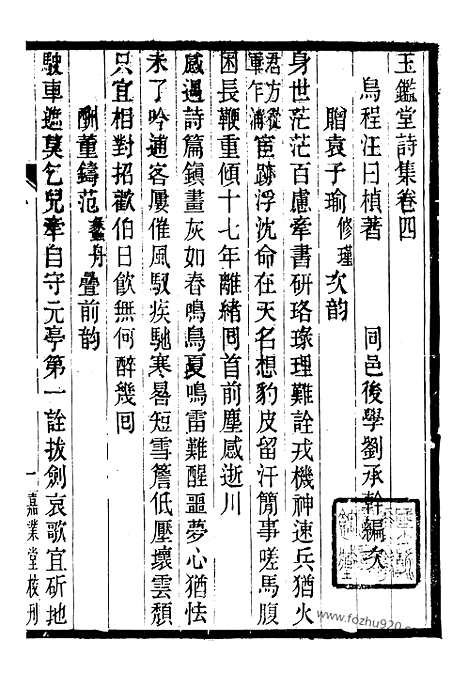 玉鑑堂詩集卷四
烏程汪曰楨著 同邑後學劉承幹編次
贈袁子瑜修瑾次韵
身世茫茫百慮牽書研珞琭理難詮戎機神速兵猶火
君方從軍乍浦宦跡浮沈命在天名想豹皮留汗簡事嗟馬腹
困長鞭重傾十七年離緒囘首前塵感逝川
感遇詩篇鎭晝灰如春鳴鳥夏鳴雷難醒噩夢心猶怯
未了吟逋客屢催風馭疾馳寒晷短雪簷低壓壞雲頹
只宜相對招歡伯日飮無何醉幾囘
酬董鑄范 疊前韵
駛車遮莫乞兒牽自守元亭第一詮拔劍哀歌宜斫地
一 嘉業堂校刋
www.fozhu920.com